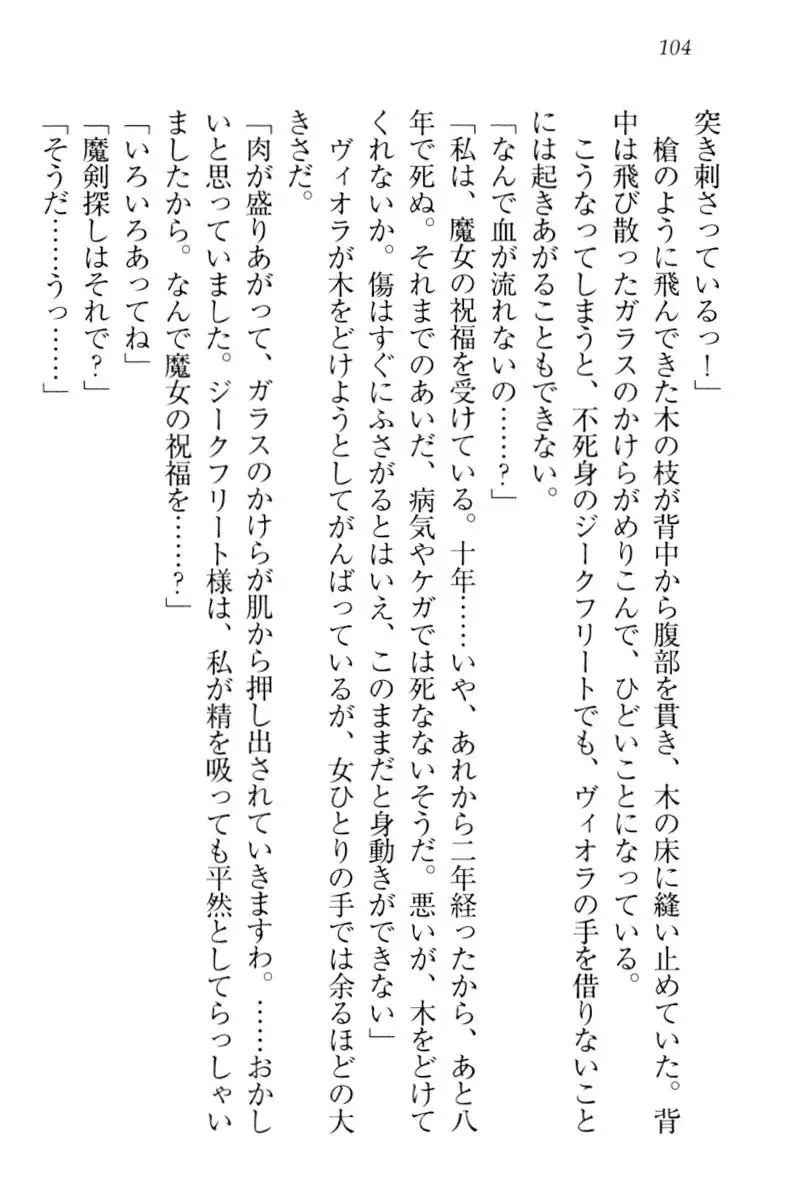 104
突き刺さっているっ！」
　槍のように飛んできた木の枝が背中から腹部を貫き、木の床に縫い止めていた。背
中は飛び散ったガラスのかけらがめりこんで、ひどいことになっている。
　こうなってしまうと、不死身のジークフリートでも、ヴィオラの手を借りないこと
には起きあがることもできない。
「なんで血が流れないの……？」
「私は、魔女の祝福を受けている。十年……いや、あれから二年経ったから、あと八
年で死ぬ。それまでのあいだ、病気やケガでは死なないそうだ。悪いが、木をどけて
くれないか。傷はすぐにふさがるとはいえ、このままだと身動きができない」
　ヴィオラが木をどけようとしてがんばっているが、女ひとりの手では余るほどの大
きさだ。
「肉が盛りあがって、ガラスのかけらが肌から押し出されていきますわ。……おかし
いと思っていました。ジークフリート様は、私が精を吸っても平然としてらっしゃい
ましたから。なんで魔女の祝福を……？」
「いろいろあってね」
「魔剣探しはそれで？」
「そうだ……うっ……」